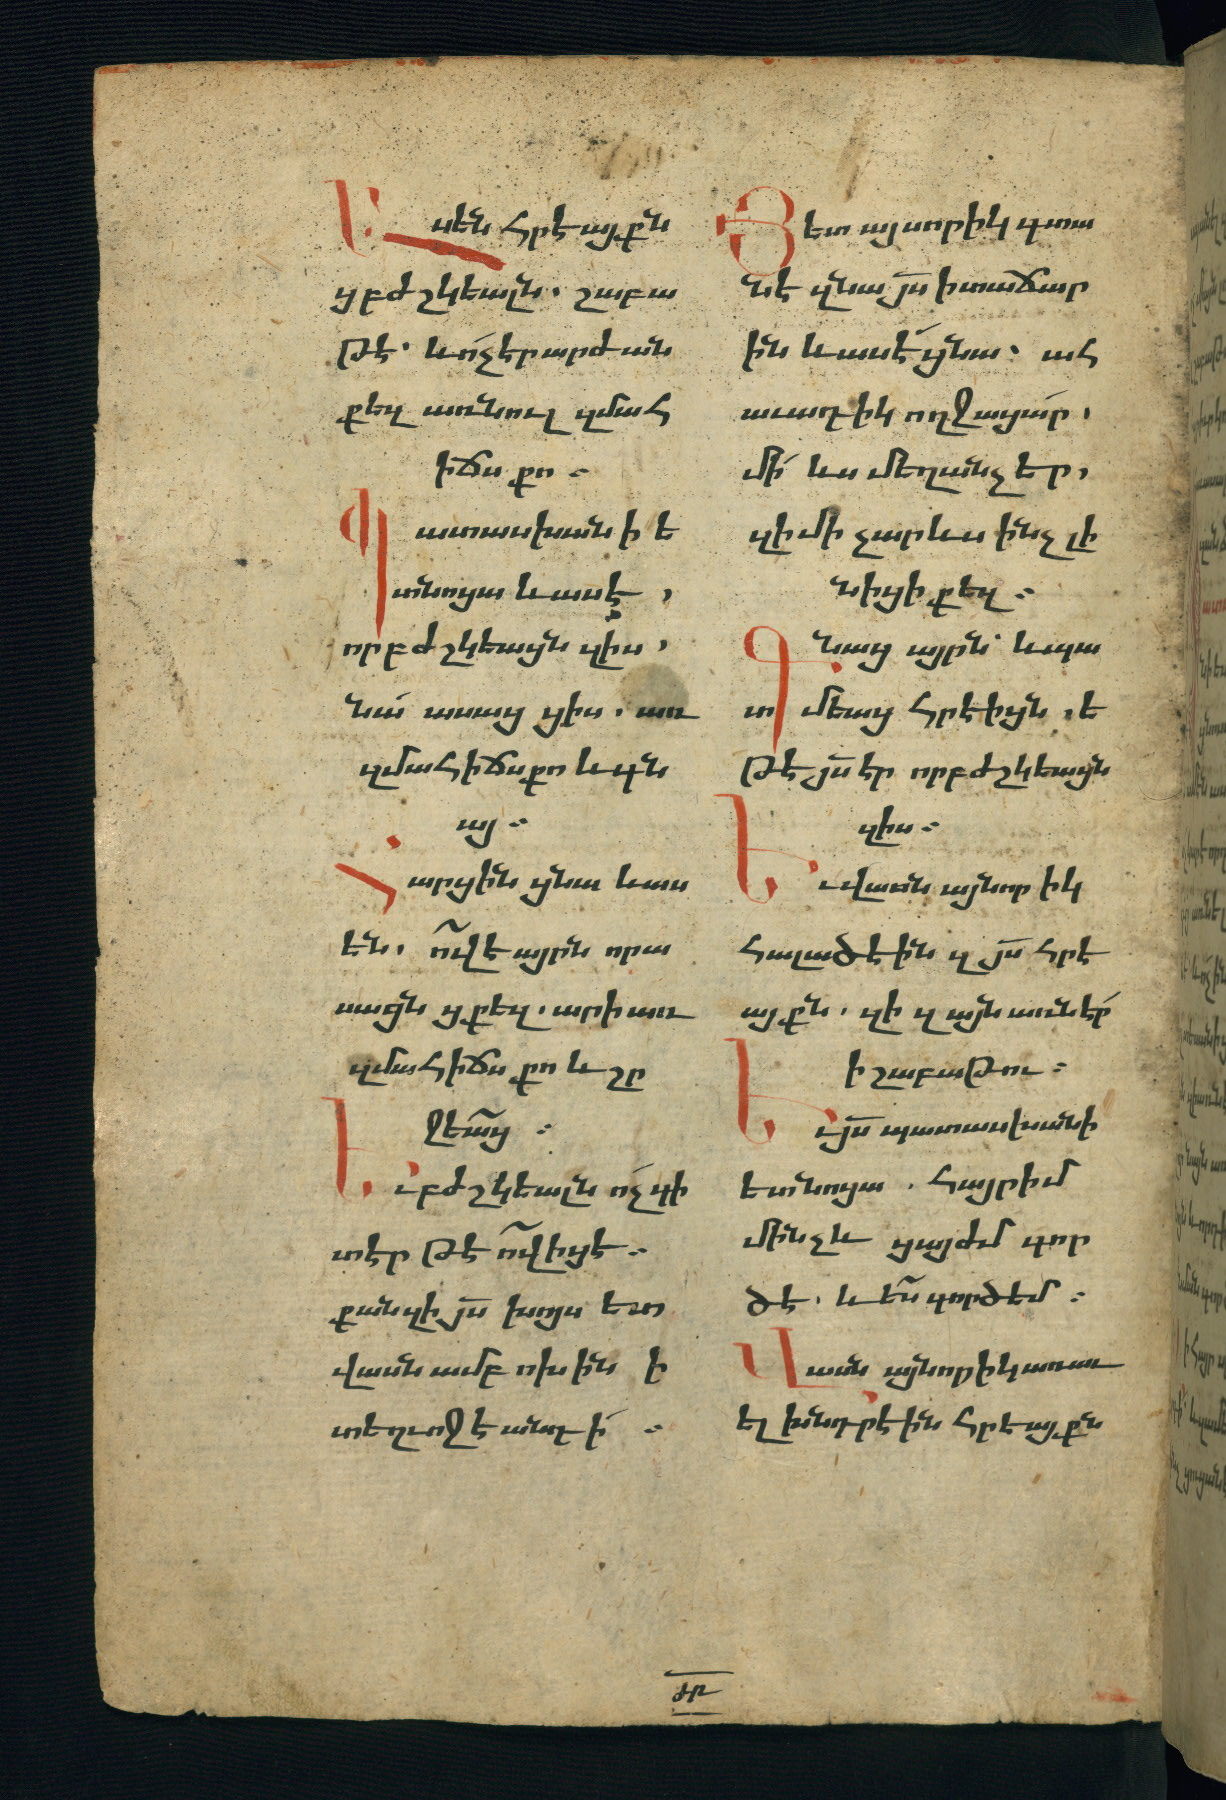 Ասէն հրէայքն
ցբժշկեալն. շաբա
թէ. և ո՛չ էր արժան
քեզ առնուլ զմահ
իճս քո :
Պատասխանի ե
տ նոցա և ասէ,
որ բժշկեացն զիս,
նա՛ ասաց ցիս. առ
զմահիճս քո և գն
այ :
Հարցին ցնա և աս
են. ո՞վ է այրն որ ա
սացն ցքեզ. արի առ
զմահիճս քո և շր
ջեա՛ց :
Եւ բժշկեալն ո՛չ գի
տէր թէ ո՞վ իցէ :
քանզի յս̄ խոյս ետ
վասն ամբոխին ի
տեղւոջէ անտի :
Յետ այսորիկ գտա
նէ զնա յս̄ ի տաճար
ին և ասէ ցնա. ահ
աւադիկ ողջացար,
մի՛ ևս մեղանչեր,
զի մի չար ևս ինչ լի
նիցի քեզ :
Գնաց այրն և պա
տմեաց հրէիցն, ե
թէ յս̄ էր որ բժշկեացն
զիս :
Եւ վասն այնորիկ
հալածէին զյս̄ հրէ
այքն. զի զայն առնէր
ի շաբաթու :
Եւ յս̄ պատասխանի
ետ նոցա . հայր իմ
մինչև ցայժմ գոր
ծէ. և ե՛ս գործեմ :
Վասն այնորիկ առաւ
ել խնդրէին հրէայքն